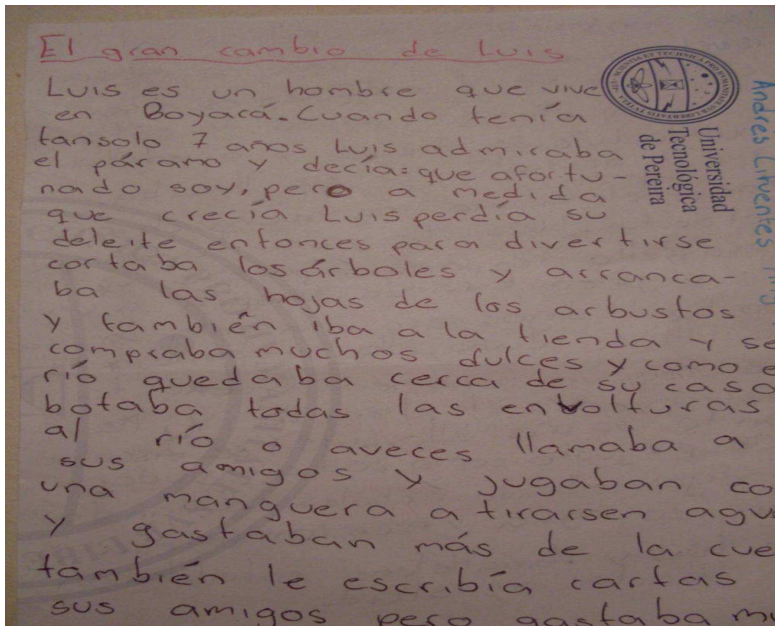 El gran cambio de Luis
Luis es un hombre que vive
en Boyacá. Cuando tenía
tansolo 7 anos Luis admiraba
el páramo y decía: que afortu-
nado soy, pero a medida
que crecía Luis perdía su
deleite entonces para divertirse
cortaba los árboles y arranca-
ba las hojas de los arbustos
y también iba a la tienda y se
compraba muchos dulces y como e
río quedaba cerca de su casa
botaba todas las envolturas
al río o aveces llamaba a
sus amigos y jugaban co
una manguera a tirarsen agu
y gastaban más de la cue
también le escribía cartas
sus amigos pero gastaba mu
Universidad
Tecnológica
de Pereira
Andres